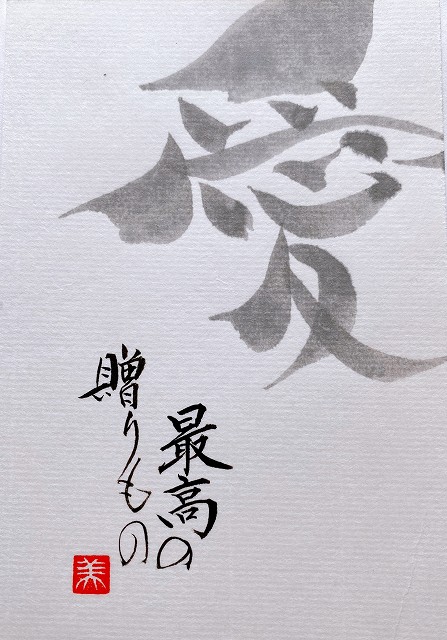 愛
最高の
贈りもの
美